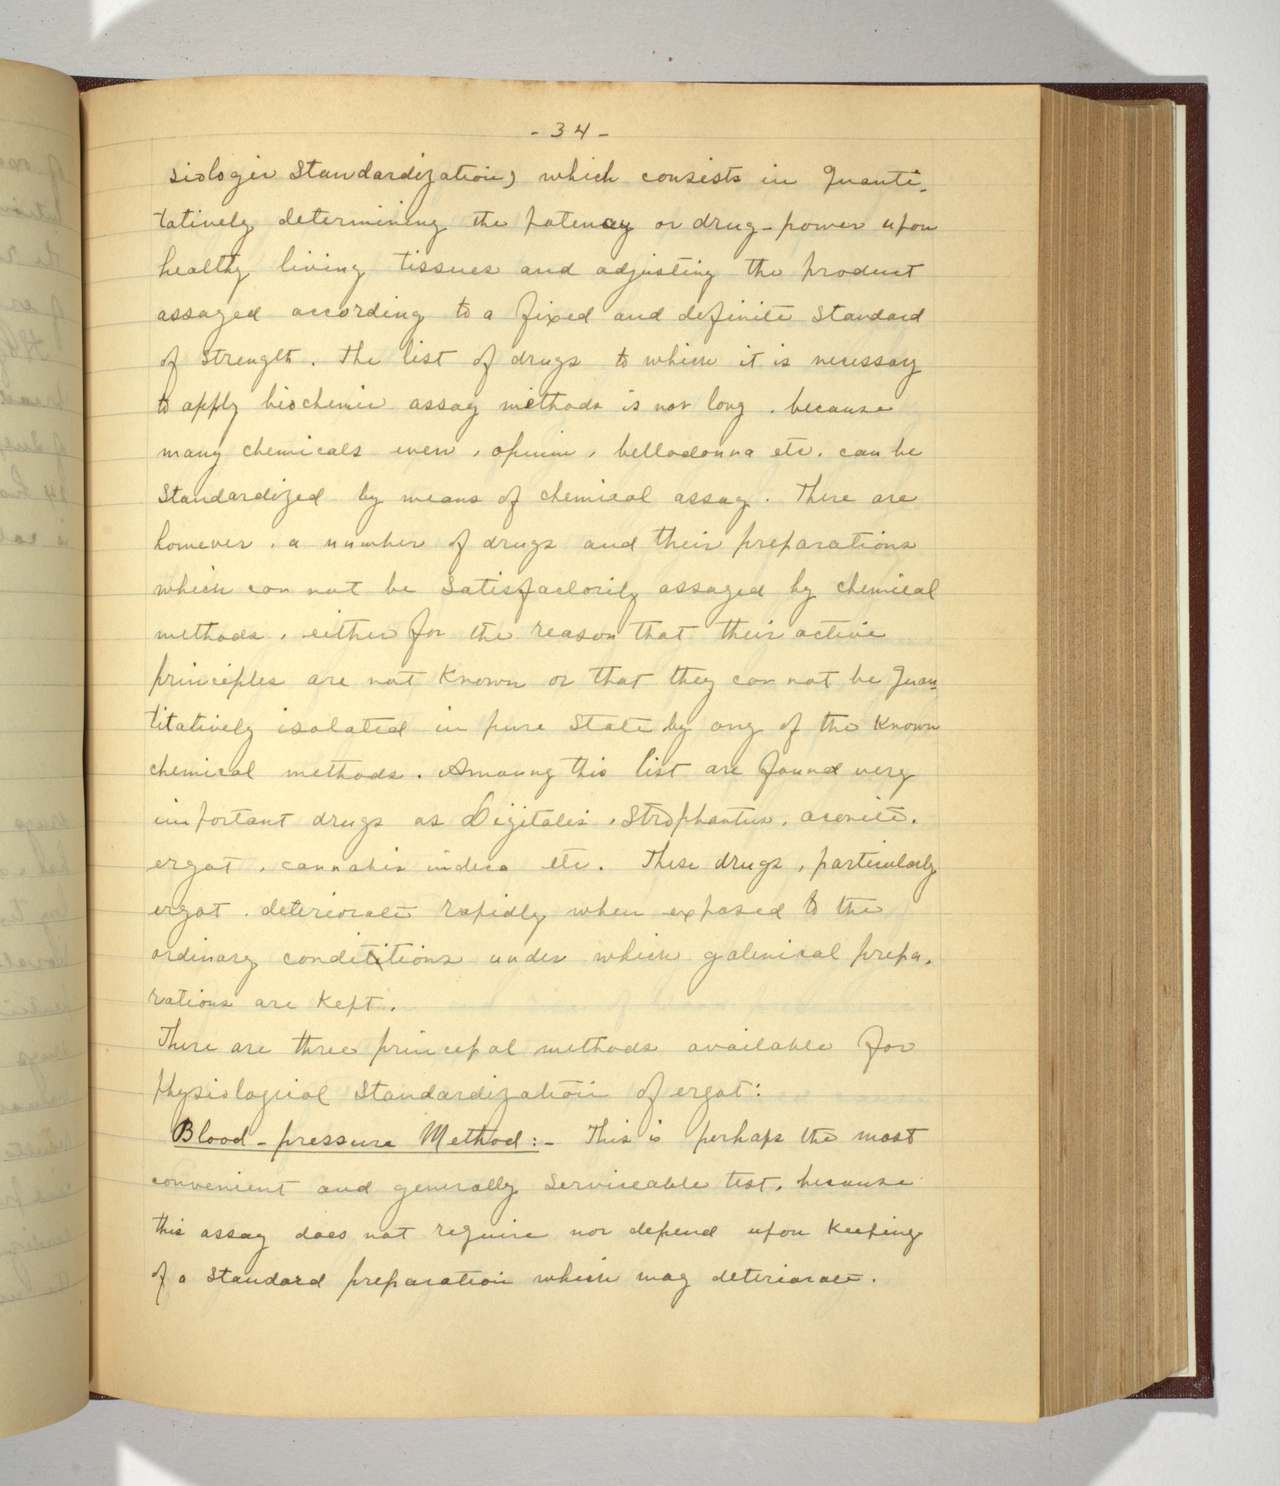 - 34 -
siologic Standardization) which consists in Quanti-
tatively determining the potency or drug-power upon
healthy living tissues and adjusting the product
assayed according to a fixed and definite Standard
of Strength. The list of drugs to which it is necessay
to apply biochemic assay methods is not long, because
many chemicals even, opium, belladonna etc. can be
Standardized by means of chemical assay. There are
however, a number of drugs and their preparations
which can not be Satisfactorily assayed by chemical
methods, either for the reason that their active
principles are not Known or that they can not be Quan
titatively isolated in pure State by any of the Known
chemical methods. Amoung this list are found very
important drugs as Digitalis, Strophantus, aconite,
ergot, cannabis indica etc. These drugs, particularly
ergot, deteriorate rapidly when exposed to the
ordinary condititions under which galenical prepa-
rations are Kept.
There are three principal methods available for
Physiological Standardization of ergot:
Blood-pressure Method:- This is perhaps the most
convenient and generally Serviceable test, because
this assay does not require nor depend upon Keeping
of a Standard preparation which may deteriorate.